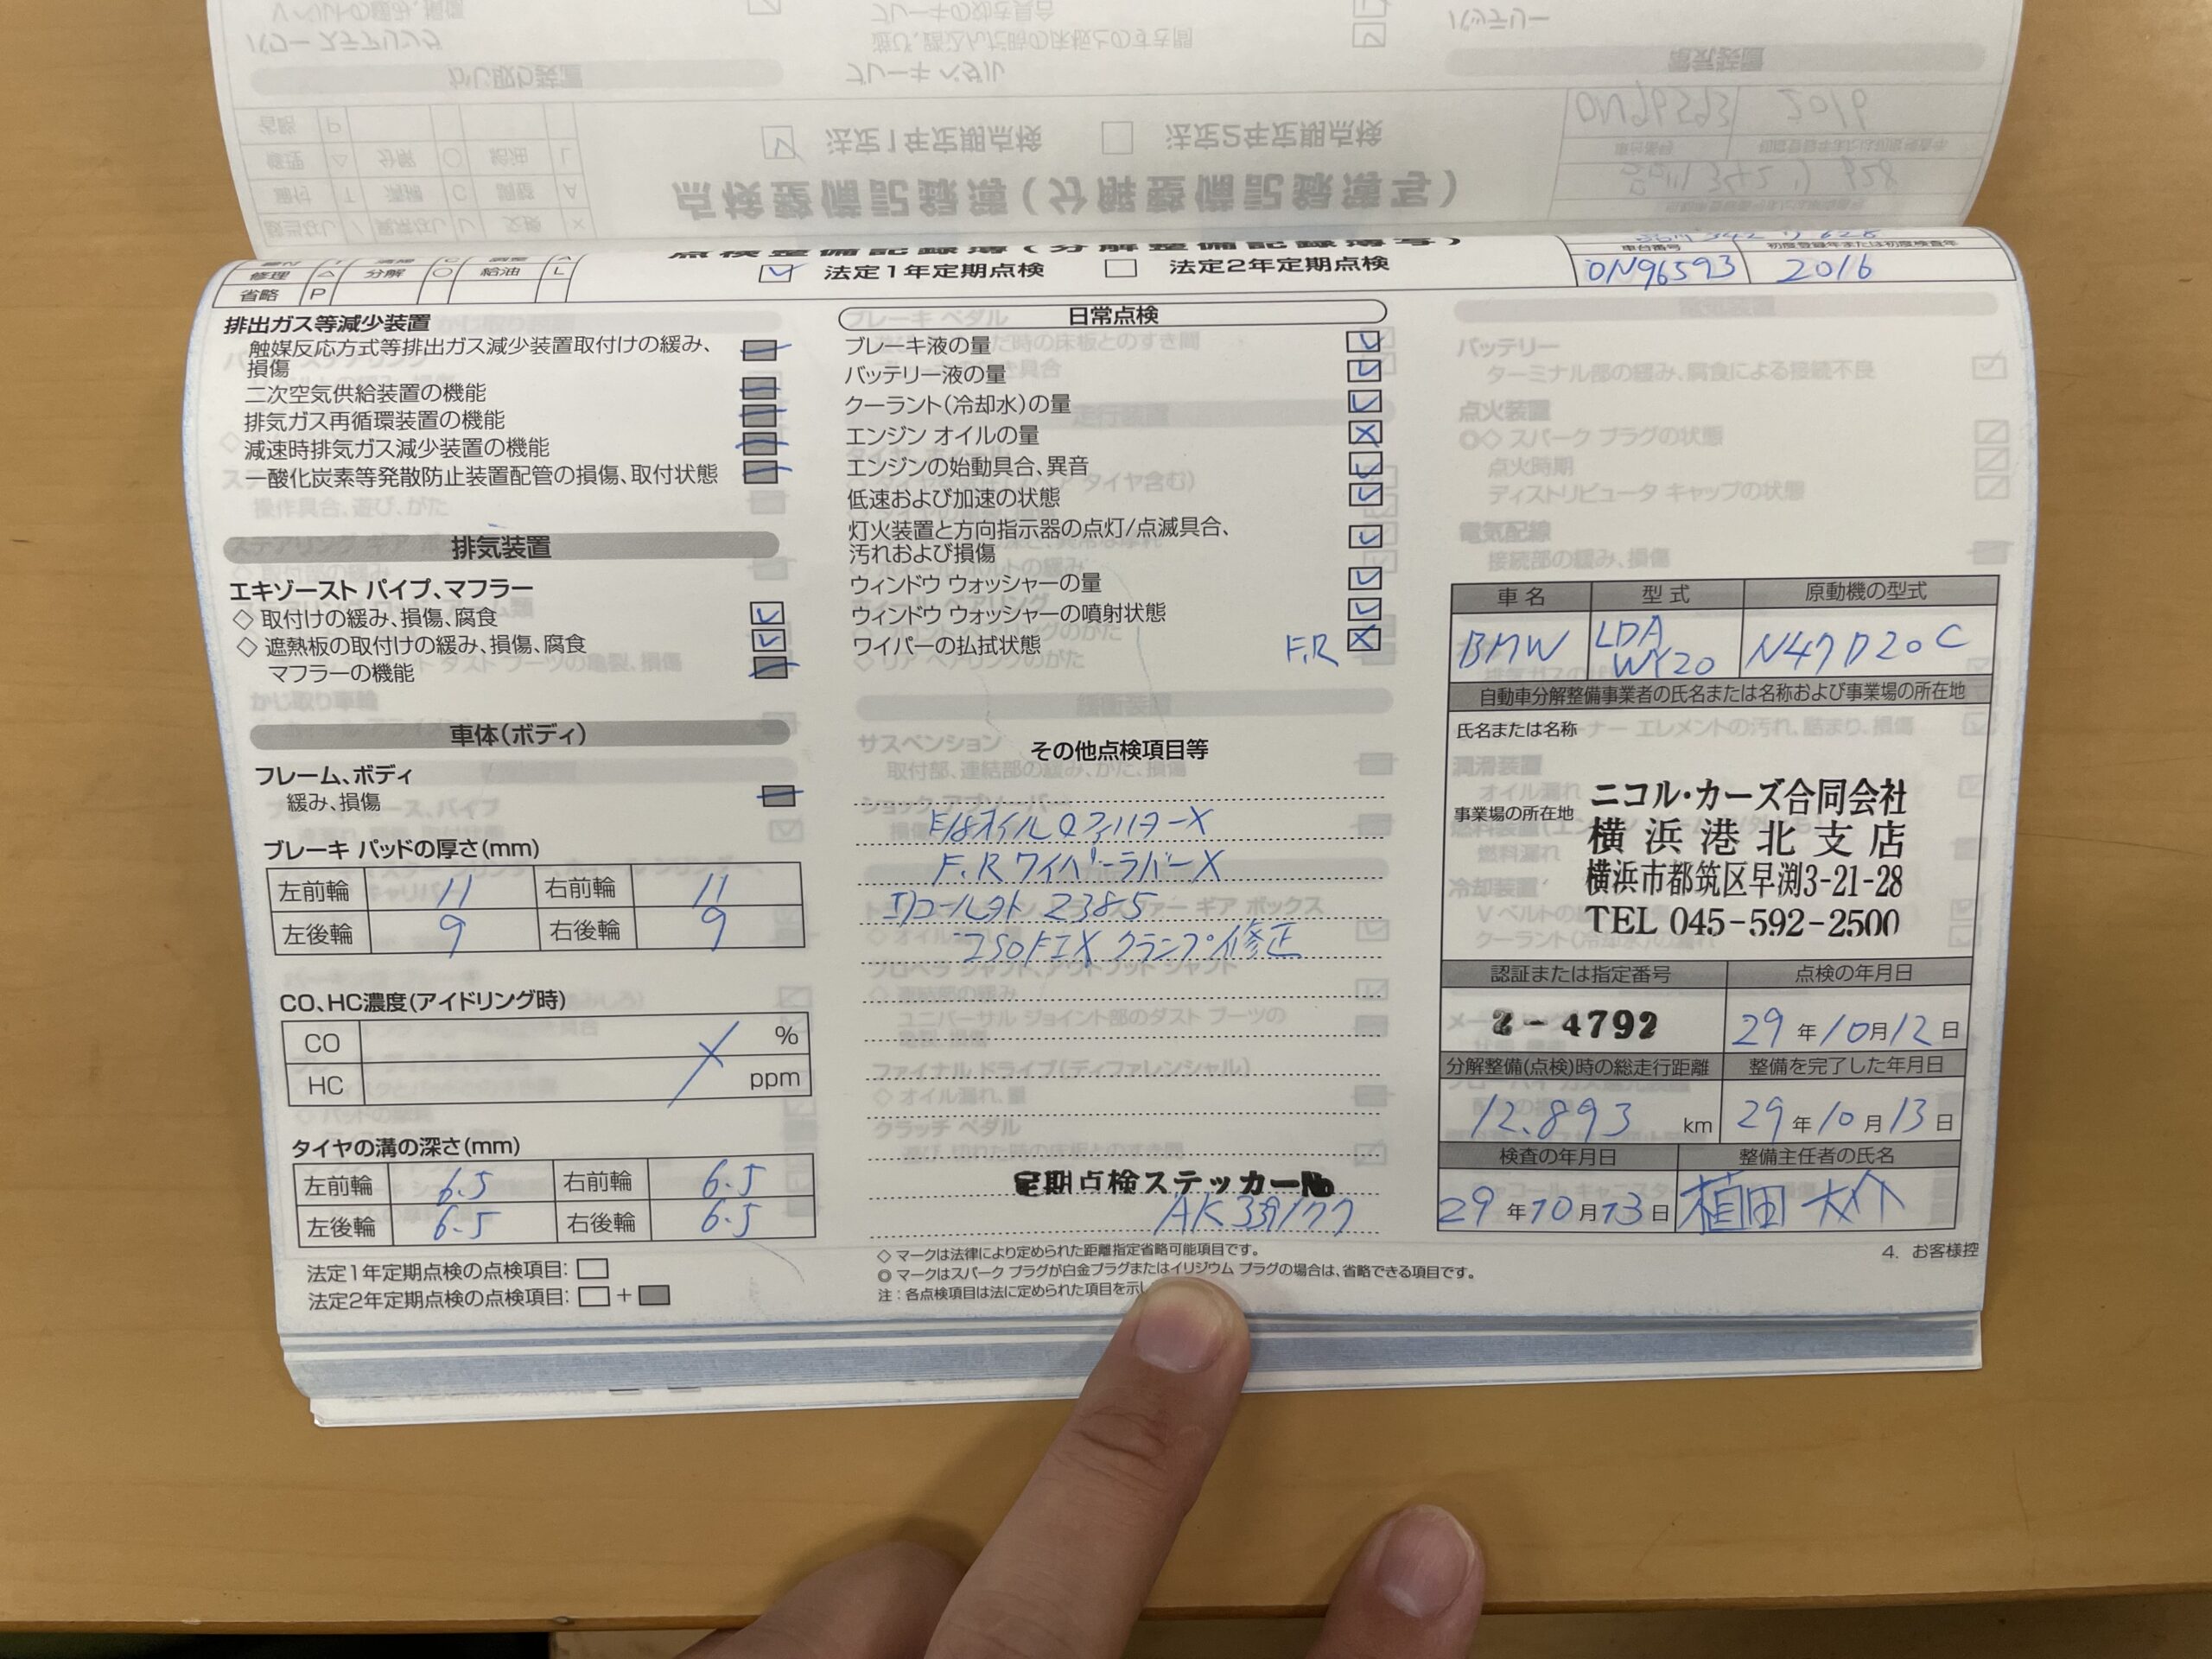 点検整備記録簿(分解整備記録簿写)
修理 △ 分解 ○ 給油 L
省略 P
☑ 法定1年定期点検 □ 法定2年定期点検
車台番号 初度登録年または初度検査年
0N96593 2016
排出ガス等減少装置
触媒反応方式等排出ガス減少装置取付けの緩み、
損傷
二次空気供給装置の機能
排気ガス再循環装置の機能
減速時排気ガス減少装置の機能
一酸化炭素等発散防止装置配管の損傷、取付状態
排気装置
エキゾースト パイプ、マフラー
◇ 取付けの緩み、損傷、腐食
◇ 遮熱板の取付けの緩み、損傷、腐食
マフラーの機能
車体(ボディ)
フレーム、ボディ
緩み、損傷
ブレーキ パッドの厚さ(mm)
左前輪 11 右前輪 11
左後輪 9 右後輪 9
CO、HC濃度(アイドリング時)
CO %
HC ppm
タイヤの溝の深さ(mm)
左前輪 6.5 右前輪 6.5
左後輪 6.5 右後輪 6.5
法定1年定期点検の点検項目:□
法定2年定期点検の点検項目:□+■
日常点検
ブレーキ液の量
バッテリー液の量
クーラント(冷却水)の量
エンジン オイルの量
エンジンの始動具合、異音
低速および加速の状態
灯火装置と方向指示器の点灯/点滅具合、
汚れおよび損傷
ウィンドウ ウォッシャーの量
ウィンドウ ウォッシャーの噴射状態
ワイパーの払拭状態 F,R
その他点検項目等
オイル フィルター X
F,R ワイパーラバー X
2385
ISOFIX クランプ修正
定期点検ステッカーNo
◇ マークは法律により定められた距離指定省略可能項目です。
◎ マークはスパーク プラグが白金プラグまたはイリジウム プラグの場合は、省略できる項目です。
注:各点検項目は法に定められた項目を示し
車名 型式 原動機の型式
BMW LDA WY20 N47D20C
自動車分解整備事業者の氏名または名称および事業場の所在地
氏名または名称
事業場の所在地
ニコル・カーズ合同会社
横浜港北支店
横浜市都筑区早渕3-21-28
TEL 045-592-2500
認証または指定番号 点検の年月日
2-4792 29年10月12日
分解整備(点検)時の総走行距離 整備を完了した年月日
12,893 km 29年10月13日
検査の年月日 整備主任者の氏名
29年10月13日 植田 大介
4. お客様控